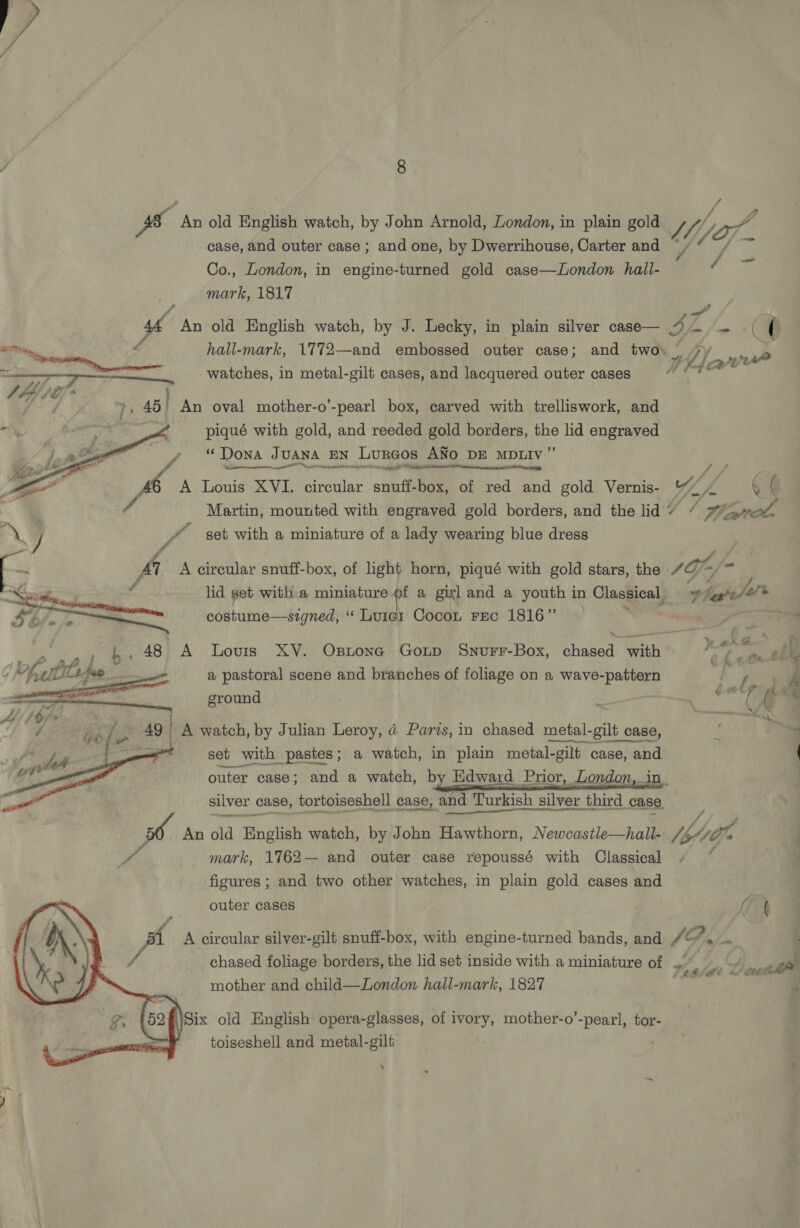 8
43 An old English watch, by John Arnold, London, in plain gold
case, and outer case; and one, by Dwerrihouse, Carter and
Co., London, in engine-turned gold case—London hall-
mark, 1817
44 An old English watch, by J. Lecky, in plain silver case—
hall-mark, 1772—and embossed outer case; and two
watches, in metal-gilt cases, and lacquered outer cases
45 An oval mother-o'-pearl box, carved with trelliswork, and
piqué with gold, and reeded gold borders, the lid engraved
“Dona Juana en Lurgos Año de mdliv”
46 A Louis XVI. circular snuff-box, of red and gold Vernis-
Martin, mounted with engraved gold borders, and the lid
set with a miniature of a lady wearing blue dress
47 A circular snuff-box, of light horn, piqué with gold stars, the
lid set with a miniature of a girl and a youth in Classical
costume—signed, “Luigi Cocol fec 1816”
48 A Louis XV. Oblong Gold Snuff-Box, chased with
a pastoral scene and branches of foliage on a wave-pattern
ground
49 A watch, by Julian Leroy, à Paris, in chased metal-gilt case,
set with pastes; a watch, in plain metal-gilt case, and
outer case; and a watch, by Edward Prior, London, in
silver case, tortoiseshell case, and Turkish silver third case
50 An old English watch, by John Hawthorn, Newcastle—hall-
mark, 1762—and outer case repoussé with Classical
figures; and two other watches, in plain gold cases and
outer cases
51 A circular silver-gilt snuff-box, with engine-turned bands, and
chased foliage borders, the lid set inside with a miniature of
mother and child—London hall-mark, 1827
52 Six old English opera-glasses, of ivory, mother-o'-pearl, tor-
toiseshell and metal-gilt